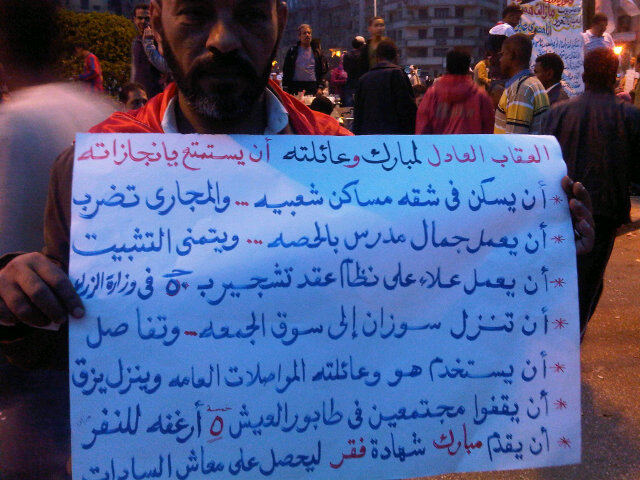 العقاب العادل لمبارك وعائلته أن يستمتع بإنجازاته
* أن يسكن فى شقه مساكن شعبيه ... والمجارى تضرب
* أن يعمل جمال مدرس بالحصه ... ويتمنى التثبيت
* أن يعمل علاء على نظام عقد تشجير بـ ٥٠ ج فى وزارة الزراعه
* أن تنزل سوزان إلى سوق الجمعه ... وتفاصل
* أن يستخدم هو وعائلته المواصلات العامه وينزل يزق
* أن يقفوا مجتمعين فى طابور العيش ٥ خمسة أرغفه للنفر
* أن يقدم مبارك شهادة فقر ليحصل على معاش السادات